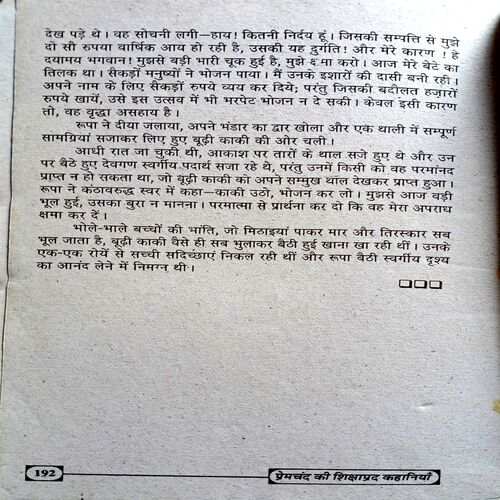 देख पड़े थे। वह सोचनी लगी—हाय! कितनी निर्दय हूं। जिसकी सम्पत्ति से मुझे
दो सौ रुपया वार्षिक आय हो रही है, उसकी यह दुर्गति! और मेरे कारण ! हे
दयामय भगवान! मुझसे बड़ी भारी चूक हुई है, मुझे क्षमा करो। आज मेरे बेटे का
तिलक था। सैकड़ों मनुष्यों ने भोजन पाया। मैं उनके इशारों की दासी बनी रही।
अपने नाम के लिए सैकड़ों रुपये व्यय कर दिये; परंतु जिसकी बदौलत हज़ारों
रुपये खायें, उसे इस उत्सव में भी भरपेट भोजन न दे सकी। केवल इसी कारण
तो, वह वृद्धा असहाय है।
रूपा ने दीया जलाया, अपने भंडार का द्वार खोला और एक थाली में सम्पूर्ण
सामग्रियां सजाकर लिए हुए बूढ़ी काकी की ओर चली।
आधी रात जा चुकी थी, आकाश पर तारों के थाल सजे हुए थे और उन
पर बैठे हुए देवगण स्वर्गीय पदार्थ सजा रहे थे, परंतु उनमें किसी को वह परमांनद
प्राप्त न हो सकता था, जो बूढ़ी काकी को अपने सम्मुख थाल देखकर प्राप्त हुआ।
रूपा ने कंठावरुद्ध स्वर में कहा—काकी उठो, भोजन कर लो। मुझसे आज बड़ी
भूल हुई, उसका बुरा न मानना। परमात्मा से प्रार्थना कर दो कि वह मेरा अपराध
क्षमा कर दें।
भोले-भाले बच्चों की भांति, जो मिठाइयां पाकर मार और तिरस्कार सब
भूल जाता है, बूढ़ी काकी वैसे ही सब भुलाकर बैठी हुई खाना खा रही थीं। उनके
एक-एक रोयें से सच्ची सदिच्छाएं निकल रही थीं और रूपा बैठी स्वर्गीय दृश्य
का आनंद लेने में निमग्न थी।
192
प्रेमचंद की शिक्षाप्रद कहानियाँ